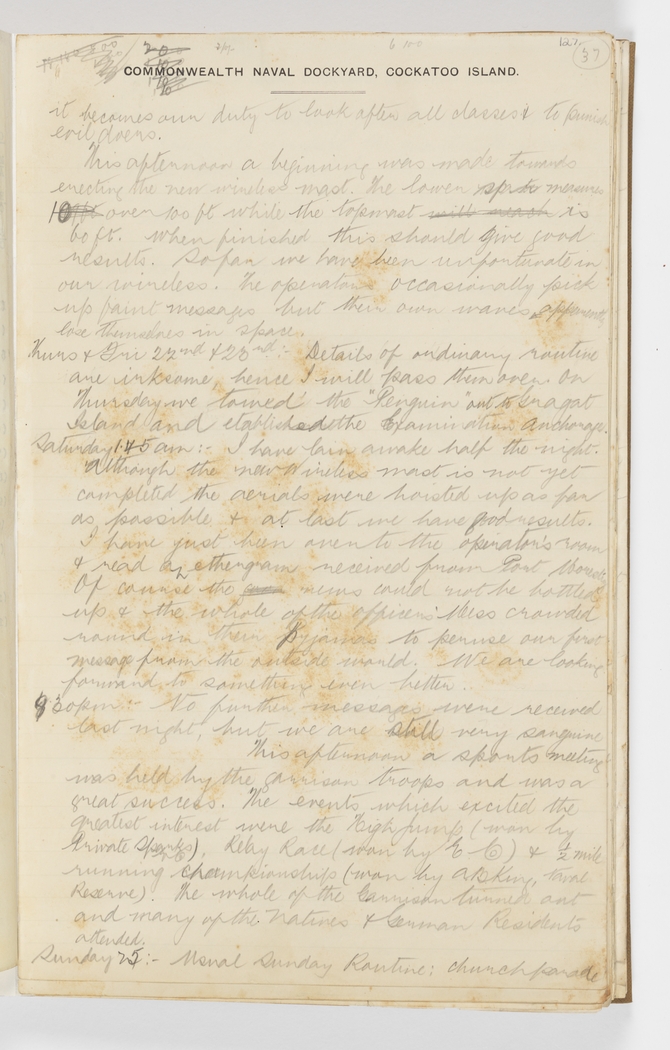 127.
37
COMMONWEALTH NAVAL DOCKYARD, COCKATOO ISLAND.
it becomes our duty to look after all classes & to punish
evil doers.
This afternoon a beginning was made towards
erecting the new wireless mast. The lower measures
over 100 ft while the topmast will reach is
60 ft. When finished this should give good
results. So far we have been unfortunate in
our wireless. The operators occasionally pick
up faint messages but their own waves apparently
lose themselves in space.
Thurs & Fri 22nd & 23rd:- Details of ordinary routine
are irksome, hence I will pass them over. On
Thursday we towed the "Penguin" out to
Island and established the Examination Anchorage.
Saturday 1.45 am:- I have lain awake half the night.
Although the new wireless mast is not yet
completed the aerials were hoisted up as far
as possible & at last we have good results.
I have just been over to the operator's room
& read a ethergram received from Port Moresby
Of course the news could not be bottled
up & the whole of the officers' Mess crowded
round in their pyjamas to peruse our first
message from the outside world. We are looking
forward to something even better.
930pm:- No further messages were received
last night, but we are still very sanguine
This afternoon a sports meeting
was held by the garrison troops and was a
great success. The events which excited the
greatest interest were the High jump (won by
Private ), Relay Race (won by E Co) & ½ mile
running championships (won by , Naval
Reserve). The whole of the Garrison turned out
and many of the Natives & German Residents
attended.
Sunday 25:- Usual Sunday Routine: church parade